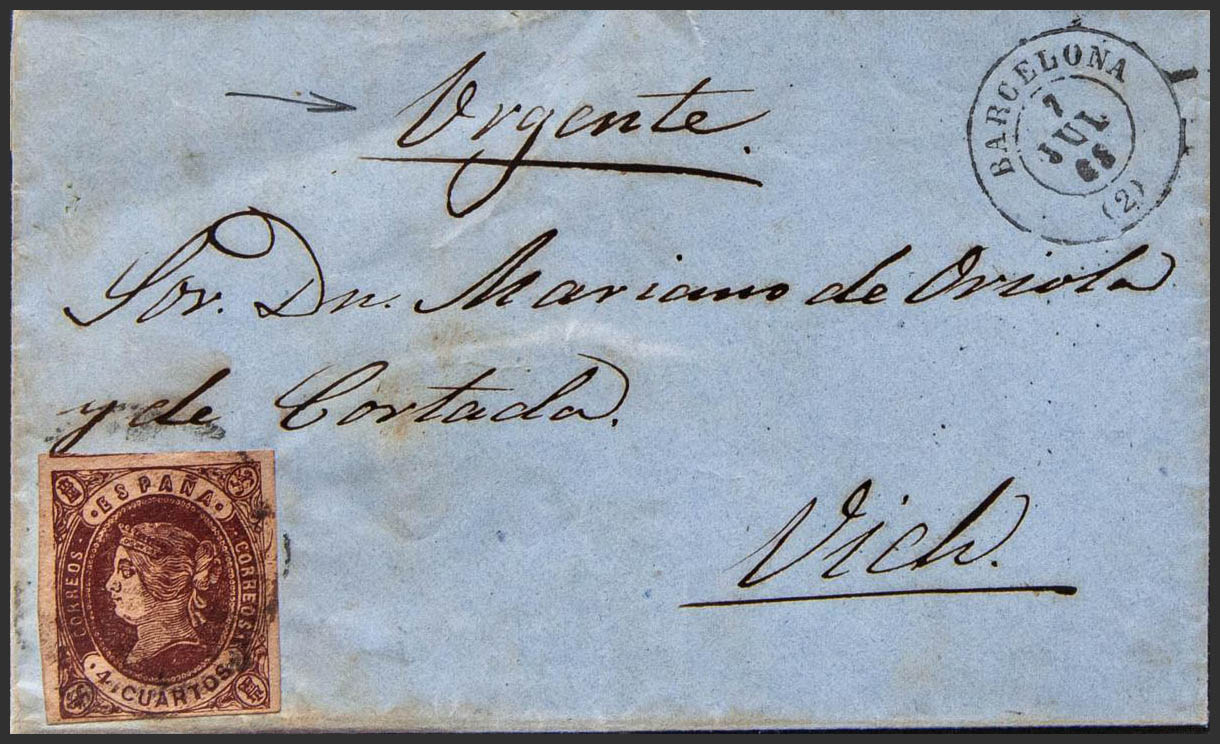 Urgente.
BARCELONA
7
JUL
68
(2)
Sor. Dn. Mariano de Oriola
y de Cortada.
Vich.
ESPAÑA
CORREOS
CORREOS
4 CUARTOS